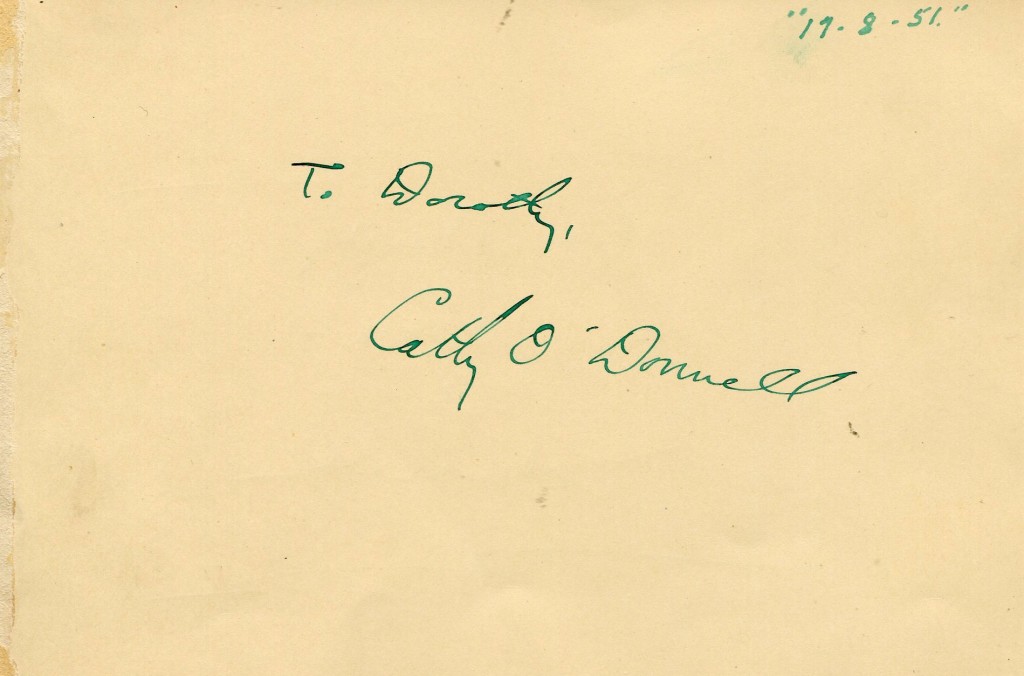 "17-8-51."
To Dorothy,
Cathy O'Donnell